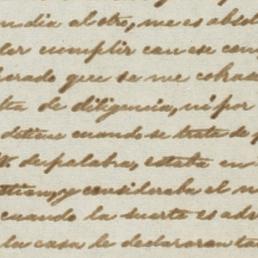 n dia al otro, me es absol
der cumplir con ese com
borado que se me cobra
lta de diligencia, ni por
detiene cuando se trate de p
de palabra, estaba en
tion, y consideraba el n
cuando la suerte es adv
la casa le declararan ta